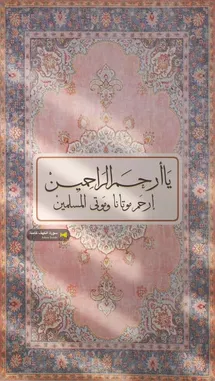 يَا أرحَم الراحمين
إرحم موتانا وموتى المسلمين